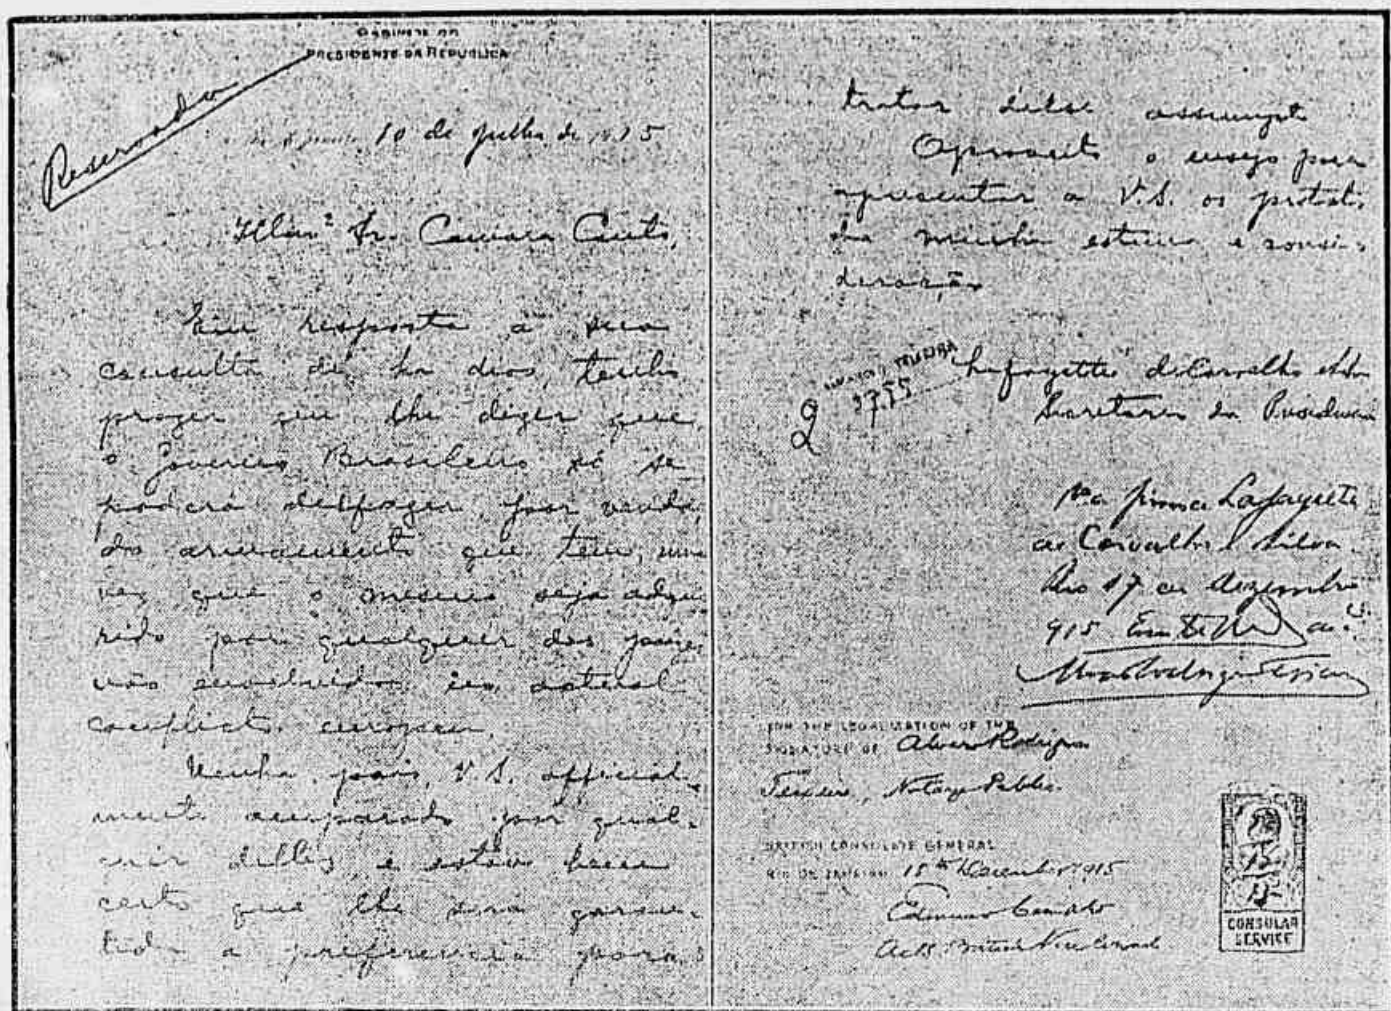 GABINETE DO
PRESIDENTE DA REPUBLICA
Reservado
10 de Julho de 1915
Illmº Sr. Camara Canto,
Em resposta á sua
consulta de ha dias, tenho
prazer em lhe dizer que
o Governo Brasileiro só se
poderá desfazer, por venda,
do armamento que tem, uma
vez que o mesmo seja adqui
rido por qualquer dos paizes
não envolvidos no actual
conflicto europeu.
Venha, pois, V. S. official-
mente amparado por qual-
quer delles, e estou bem
certo que lhe será garan-
tida a preferencia para
tratar desse assumpto
Aproveito o ensejo para
apresentar a V. S. os protestos
da minha estima e consi-
deração
Lafayette de Carvalho e Silva
Secretario da Presidencia
2
TEIXEIRA
firma Lafayette
de Carvalho e Silva.
Rio 17 de Dezembro
915 Em
FOR THE LEGALIZATION OF THE
SIGNATURE OF Alvaro Rodrigues
Teixeira, Notary Public.
BRITISH CONSULATE GENERAL
RIO DE JANEIRO 18th December 1915
British Vice Consul
CONSULAR
SERVICE